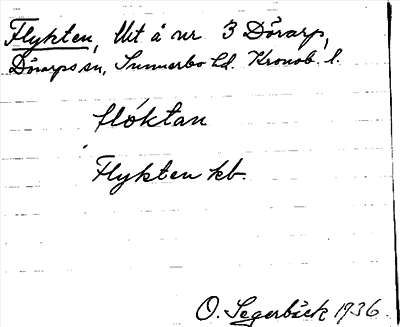 Flykten, Ut å nr 3 Dörarp,
Dörarps sn, Sunnerbo hd. Kronob. l.
flóktan
Flykten kb.
O. Segerbäck 1936.